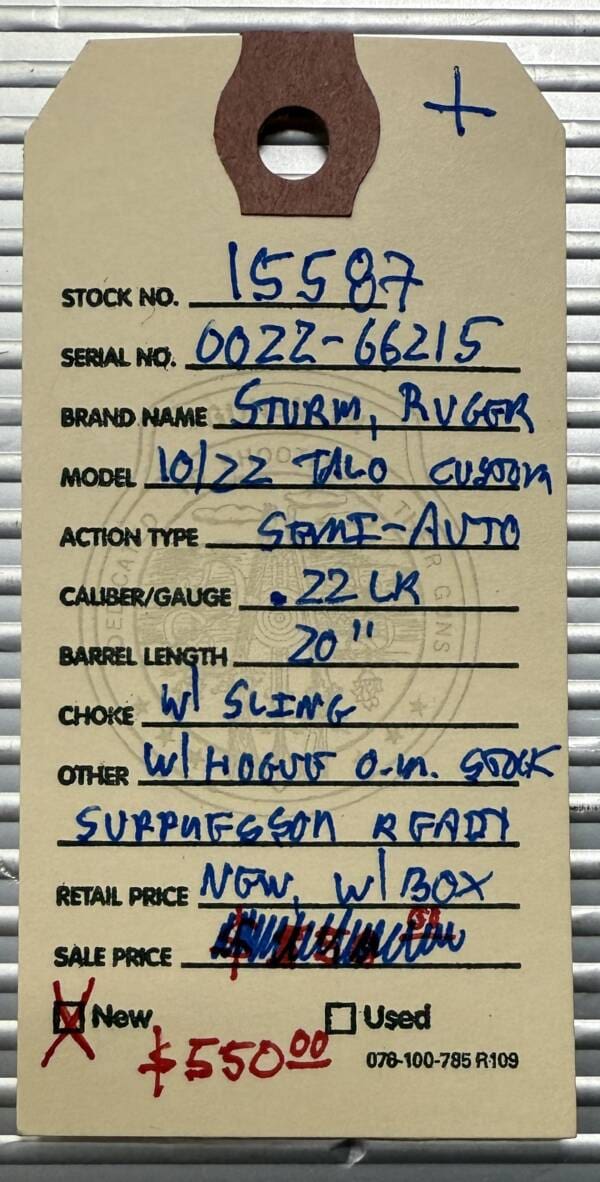 +
STOCK NO. 15587
SERIAL NO. 0022-66215
BRAND NAME STURM, RUGER
MODEL 10/22 TALO CUSTOM
ACTION TYPE SEMI-AUTO
CALIBER/GAUGE .22 LR
BARREL LENGTH 20"
CHOKE W/ SLING
OTHER W/ HOGUE O.M. STOCK
SUPPRESSOR READY
RETAIL PRICE NEW, W/ BOX
SALE PRICE
New Used
$550.00
078-100-785 R109